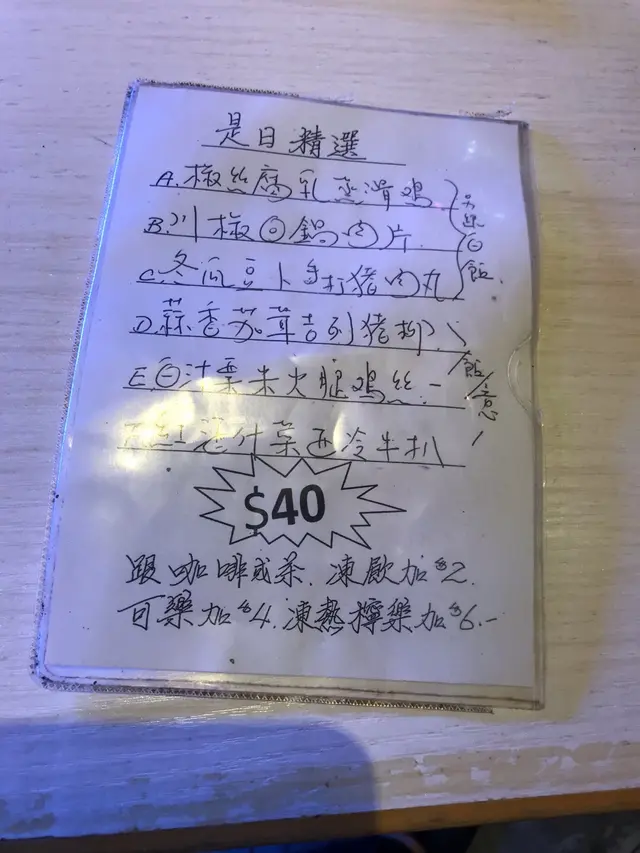 是日精選
A.椒絲腐乳蒸滑鸡
B.川椒回鍋肉片
C.冬瓜豆卜手打猪肉丸
另跟白飯
D.蒜香茄茸吉列猪柳
E.白汁粟米火腿鸡丝
飯/意
F.红酒什菜西冷牛扒
$40
跟咖啡或茶.凍飲加$2.
可樂加$4.凍熱檸樂加$6.-